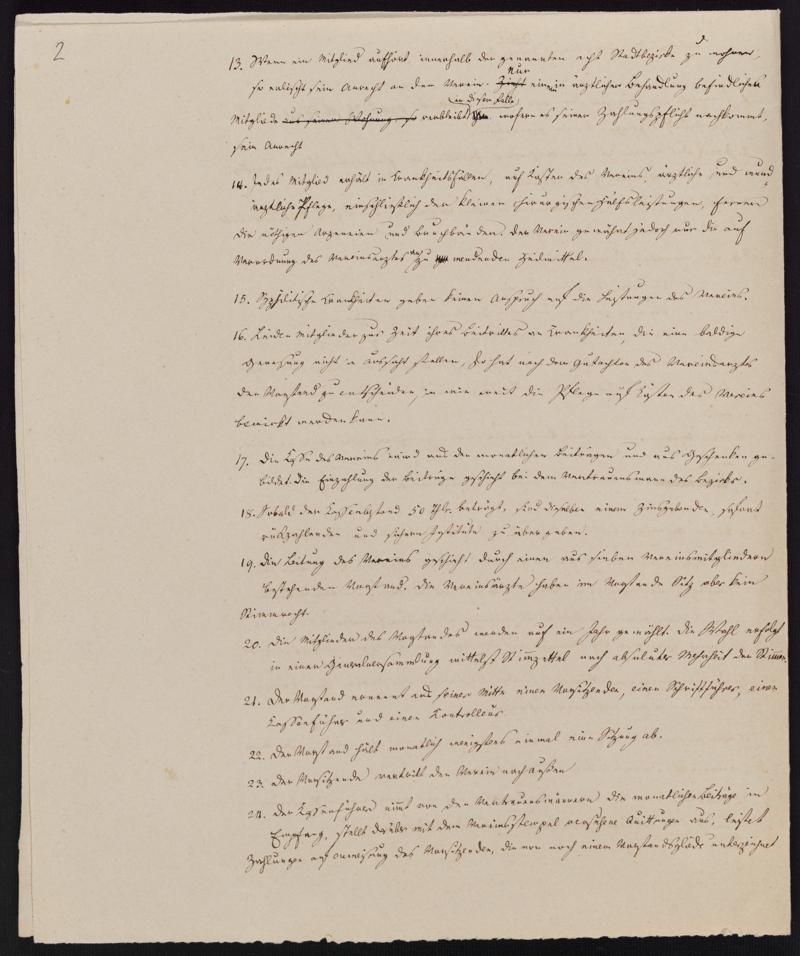 2
13. Wenn ein Mitglied aufhört innerhalb der genannten acht Stadtbezirke zu wohnen,
so erlischt sein Anrecht an den Verein. Nur einem in ärztlicher Behandlung befindlichen
Mitgliede aus seiner Wohnung so verbleibt in diesem Falle, wofern es seiner Zahlungspflicht nachkommt,
sein Anrecht
14. Jedes Mitglied erhält in Krankheitsfällen, auf Kosten des Vereins, ärztliche und wund-
ärztliche Pflege, einschließlich der kleinen chirurgischen Hülfsleistungen, ferner
die nöthigen Arzeneien und Bruchbänder. Der Verein gewährt jedoch nur die auf
Verordnung des Vereinsarztes anzuwendenden Heilmittel.
15. Syphilitische Krankheiten geben keinen Anspruch auf die Leistungen des Vereins.
16. Leiden Mitglieder zur Zeit ihres Beitrittes an Krankheiten, die eine baldige
Genesung nicht in Aussicht stellen, so hat nach dem Gutachten des Vereinsarztes
der Vorstand zu entscheiden, in wie weit die Pflege auf Kosten des Vereins
bewirkt werden kann.
17. Die Kasse des Vereins wird aus den monatlichen Beiträgen und aus Geschenken ge-
bildet. Die Einzahlung der Beiträge geschieht bei dem Vertrauensmann des Bezirks.
18. Sobald der Kassenbestand 50 Thlr. beträgt, sind dieselben einem Zinsgebenden, sofort
rückzahlenden und sichern Institute zu übergeben.
19. Die Leitung des Vereins geschieht durch einen aus sieben Vereinsmitgliedern
bestehenden Vorstand. Die Vereinsärzte haben im Vorstande Sitz aber kein
Stimmrecht.
20. Die Mitglieder des Vorstandes werden auf ein Jahr gewählt. Die Wahl erfolgt
in einer Generalversammlung mittelst Stimmzettel nach absoluter Mehrheit der Stimmen.
21. Der Vorstand ernennt aus seiner Mitte einen Vorsitzenden, einen Schriftführer, einen
Kassenführer und einen Kontrolleur.
22. Der Vorstand hält monatlich wenigstens einmal eine Sitzung ab.
23. Der Vorsitzende vertritt den Verein nach Außen
24. Der Kassenführer nimmt von den Vertrauensmännern die monatlichen Beiträge in
Empfang, stellt darüber mit dem Vereinsstempel versehene Quittungen aus, leistet
Zahlungen auf Anweisung des Vorsitzenden, die von noch einem Vorstandsgliede unterzeichnet